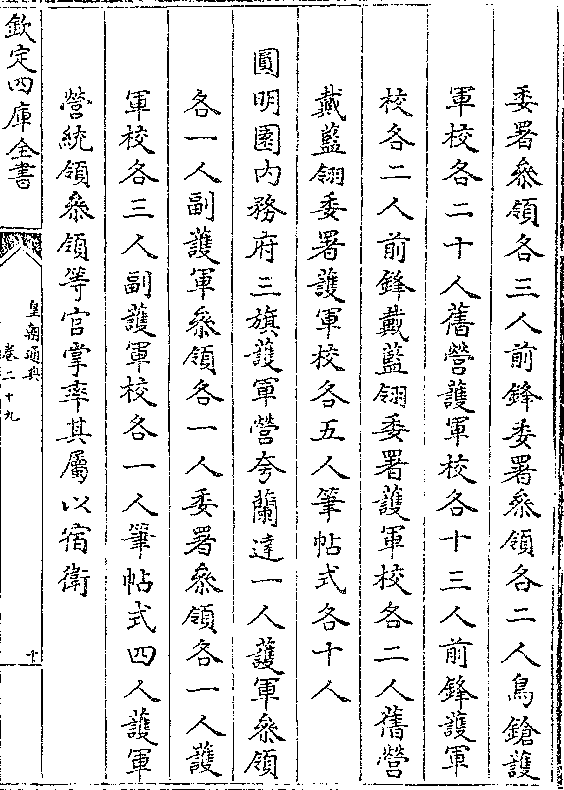 委署叅領各三人前鋒委署叅領各二人鳥鎗護
軍校各二十人舊營護軍校各十三人前鋒護軍
校各二人前鋒戴藍翎委署護軍校各二人舊營
戴藍翎委署護軍校各五人筆帖式各十人
圓明園內務府三旗護軍營夸蘭達一人護軍叅領
各一人副護軍叅領各一人委署叅領各一人護
軍校各三人副護軍校各一人筆帖式四人護軍
營統領叅領等官掌率其屬以宿衛
欽定四庫全書
皇朝通典
卷二十九
十